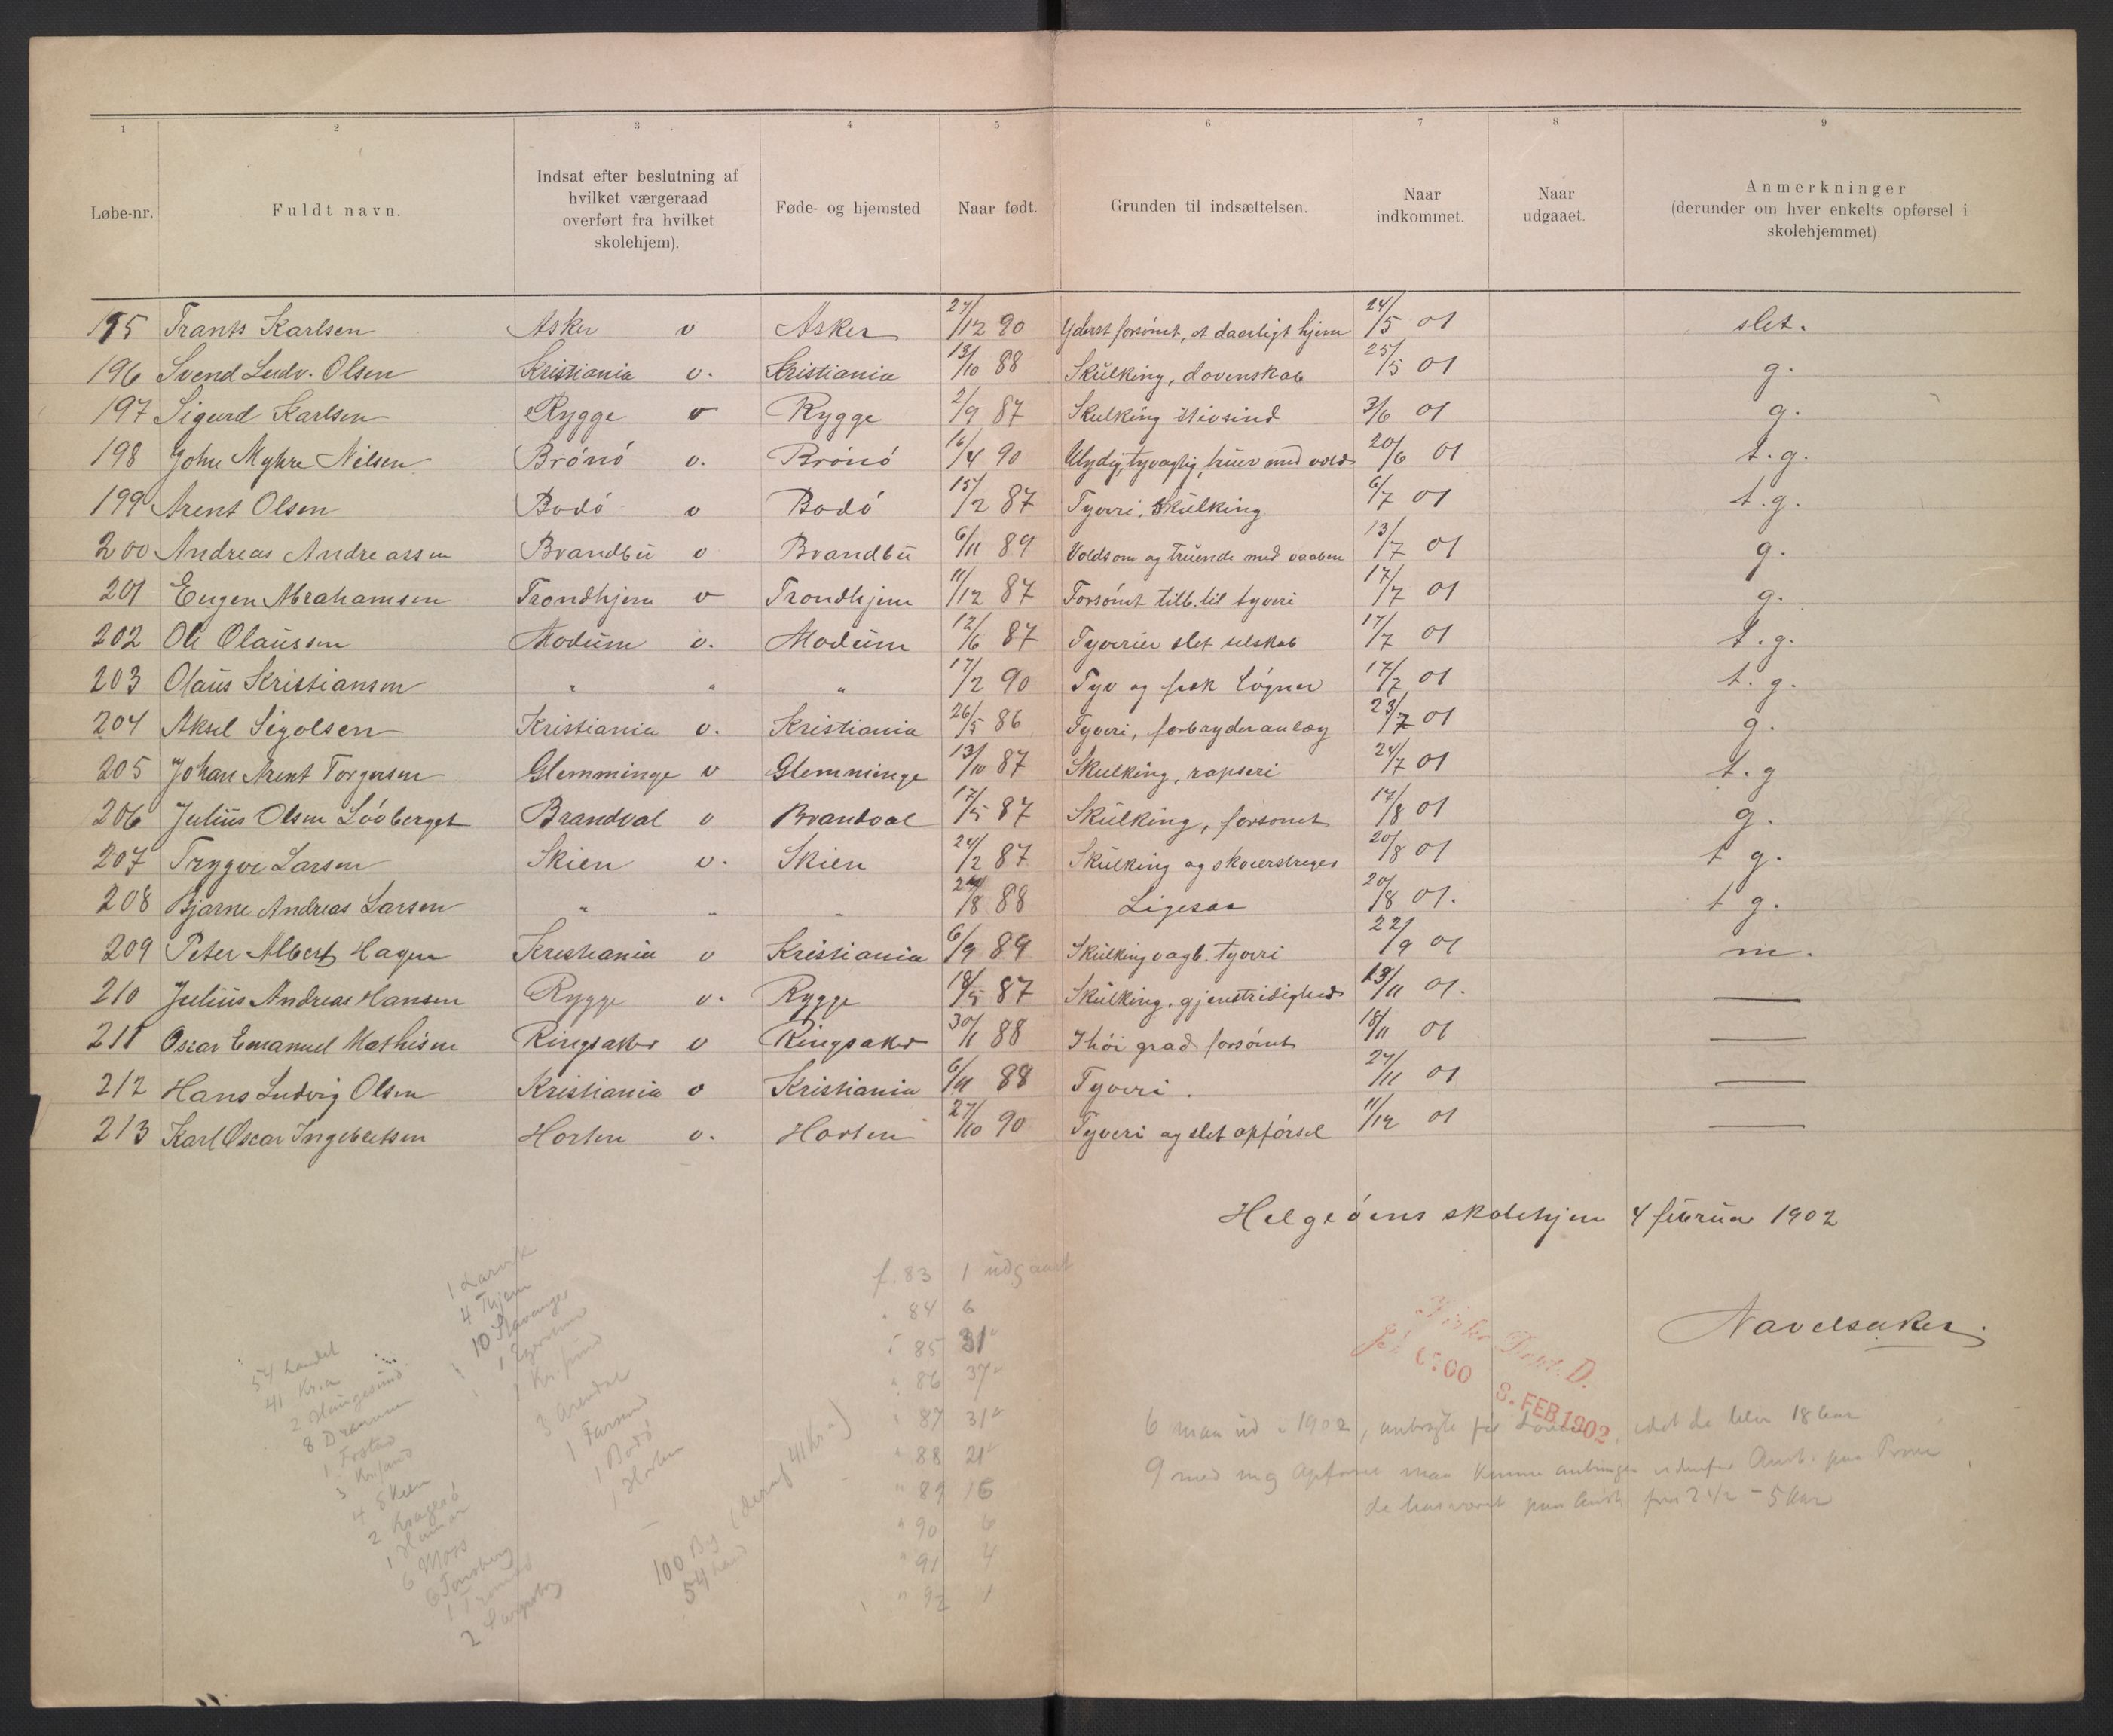 1 2 3 4 5 6 7 8 9
Løbe-nr. Fuldt navn. Indsat efter beslutning af hvilket værgeraad overført fra hvilket skolehjem). Føde- og hjemsted Naar født. Grunden til indsættelsen. Naar indkommet. Naar udgaaet. Anmerkninger (derunder om hver enkelts opførsel i skolehjemmet).
195 Frants Karlsen Asker v Asker 27/12 90 Yderst forsómt, et daarligt hjem 24/5 01 slet.
196 Svend Ludv. Olsen Kristiania v. Kristiania 13/10 88 Skulking, dovenskab 25/5 01 g.
197 Sigurd Karlsen Rygge v Rygge 2/9 87 Skulking stivsind 3/6 01 g.
198 John Myhre Nilsen Brónó v. Brónó 16/4 90 Ulydig, tyvagtig, truer med vold 20/6 01 t.g.
199 Arent Olsen Bodó v Bodó 15/2 87 Tyveri, Skulking 6/7 01 t.g.
200 Andreas Andreassen Brandbu v Brandbu 6/11 89 Voldsom og truende med vaaben 13/7 01 g.
201 Eugen Abrahamsen Trondhjem v Trondhjem 11/12 87 Forsómt tilb. til tyveri 17/7 01 g.
202 Ole Olaussen Modum v. Modum 12/6 87 Tyverier slet selskab 17/7 01 t.g.
203 Olaus Kristiansen " " " 17/2 90 Tyv og fræk lógner 17/7 01 t.g.
204 Aksel Sigolsen Kristiania v. Kristiania 26/5 86 Tyveri, forbryderanlæg 23/7 01 g.
205 Johan Arent Torgersen Glemminge v Glemminge 13/10 87 Skulking, rapseri 24/7 01 t.g
206 Julius Olsen Lóvberget Brandval v Brandval 17/5 87 Skulking, forsomt 17/8 01 g.
207 Trygve Larsen Skien v. Skien 24/2 87 Skulking og skøierstreger 20/8 01 t g.
208 Bjarne Andreas Larsen " " " /8 88 Ligesaa 20/8 01. t g.
209 Peter Albert Hagen Kristiania v Kristiania 6/9 89 Skulking vagb. tyveri 22/9 01 m.
210 Julius Andreas Hansen Rygge v. Rygge 18/5 87 Skulking, gjenstridighed 13/11 01. —
211 Oscar Emanuel Mathisen Ringsaker v Ringsaker 30/1 88 I hói grad forsómt 18/11 01 —
212 Hans Ludvig Olsen Kristiania v Kristiania 6/11 88 Tyveri. 27/11 01 —
213 Karl Oscar Ingebretsen Horten v. Horten 27/10 90 Tyveri og slet opfórsel 11/12 01 —
Helgeóens skolehjem 4 februar 1902
Navelsaker.
Kirke Dept. D.
8. FEB 1902
1 Larvik
4 Thjem
10 Stavanger
3 Arendal
1 Farsund
1 Bodó
1 Horten
54 Landet
41 Kr.a
2 Haugesund
8 Drammen
4 Skien
2 Krageró
1 Hamar
6 Moss
2 Sarpsborg
100 By (deraf 41 Kr.a)
54 Land
f. 83 1 udgaaet
" 84 6
" 85 31
" 86 37
" 87 31
" 88 21
" 89 16
" 90 6
" 91 4
" 92 1
6 maa ud i 1902, idet de bliver 18 Aar
9 med mg Opførsel maa kunne anbringes udenfor Anst. paa Prøve
de har været paa Anst fra 2 1/2 - 5 Aar